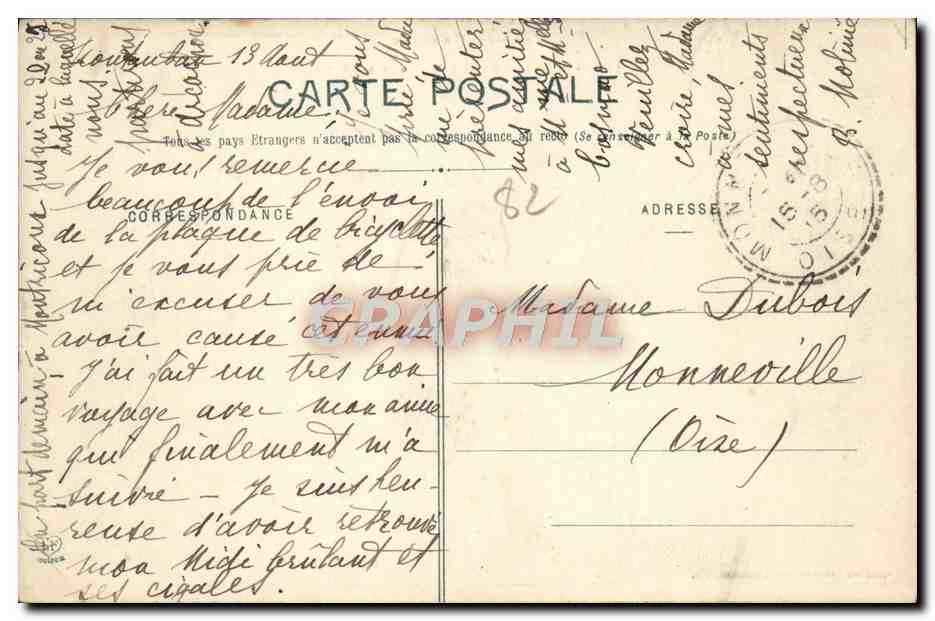 Montauban 13 Aout
CARTE POSTALE
Chère Madame,
Tous les pays Etrangers n'acceptent pas la correspondance au recto (Se renseigner à la Poste)
Je vous remercie
beaucoup de l'envoi
CORRESPONDANCE
de la plaque de bicyclette
et je vous prie de
m'excuser de vous
avoir causé cet ennui
J'ai fait un très bon
voyage avec mon amie
qui finalement m'a
suivie – Je suis heu-
reuse d'avoir retrouvé
mon Midi brûlant et
ses cigales.
On part demain à Montricoux jusqu'au 22 ou 25
date à laquelle
nous
Je vous
prie Madame
de
présenter
mes amitiés
à
à
Veuillez
croire Madame
à mes
sentiments
respectueux
B. Moliné
82
ADRESSE
MONNE
15 - 8
OISE
Madame Dubois
Monneville
(Oise)
CPAPHIL